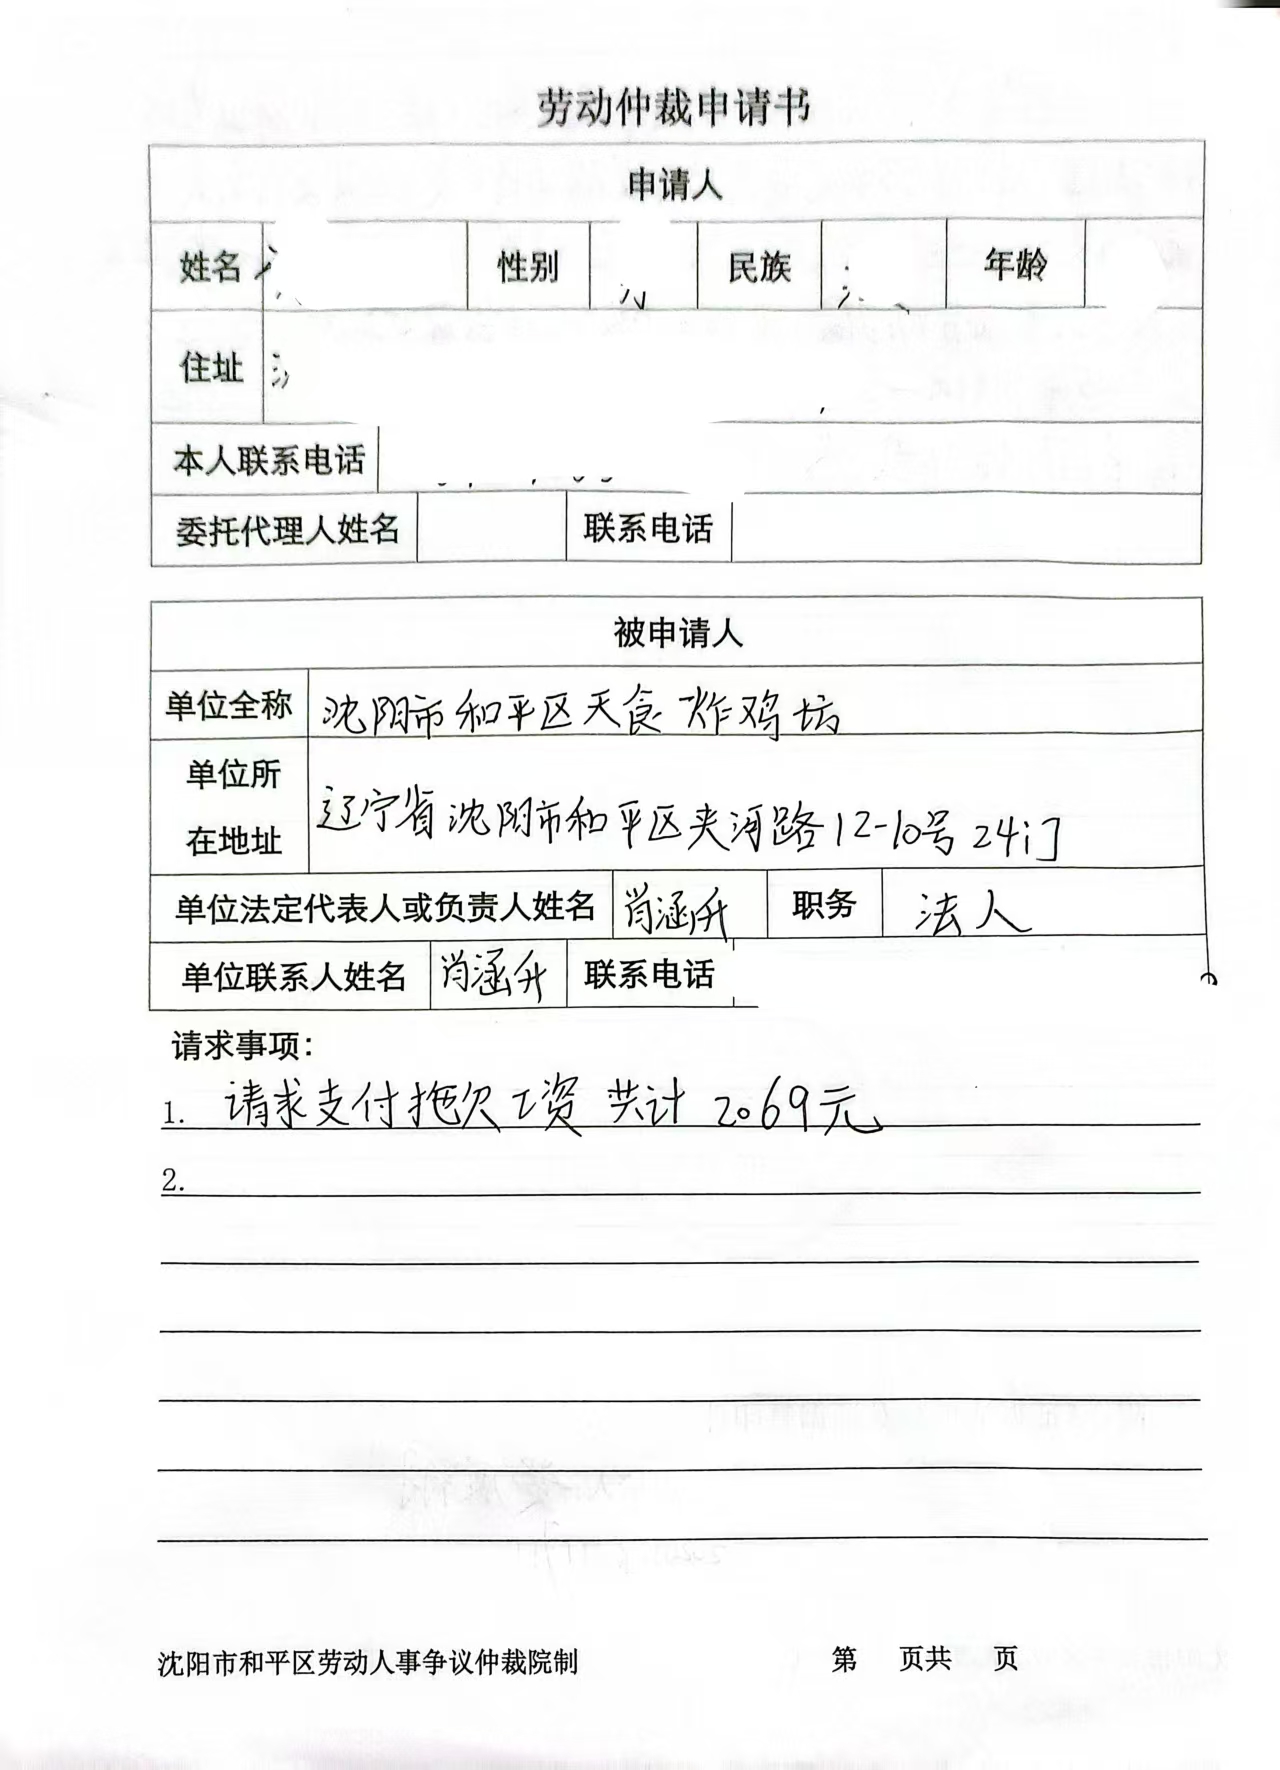 劳动仲裁申请书
申请人
姓名 性别 民族 年龄
住址
本人联系电话
委托代理人姓名 联系电话
被申请人
单位全称 沈阳市和平区天食炸鸡坊
单位所
在地址 辽宁省沈阳市和平区夹河路12-10号24门
单位法定代表人或负责人姓名 肖涵升 职务 法人
单位联系人姓名 肖涵升 联系电话
请求事项：
1. 请求支付拖欠工资 共计 2069元
2.
沈阳市和平区劳动人事争议仲裁院制 第 页共 页